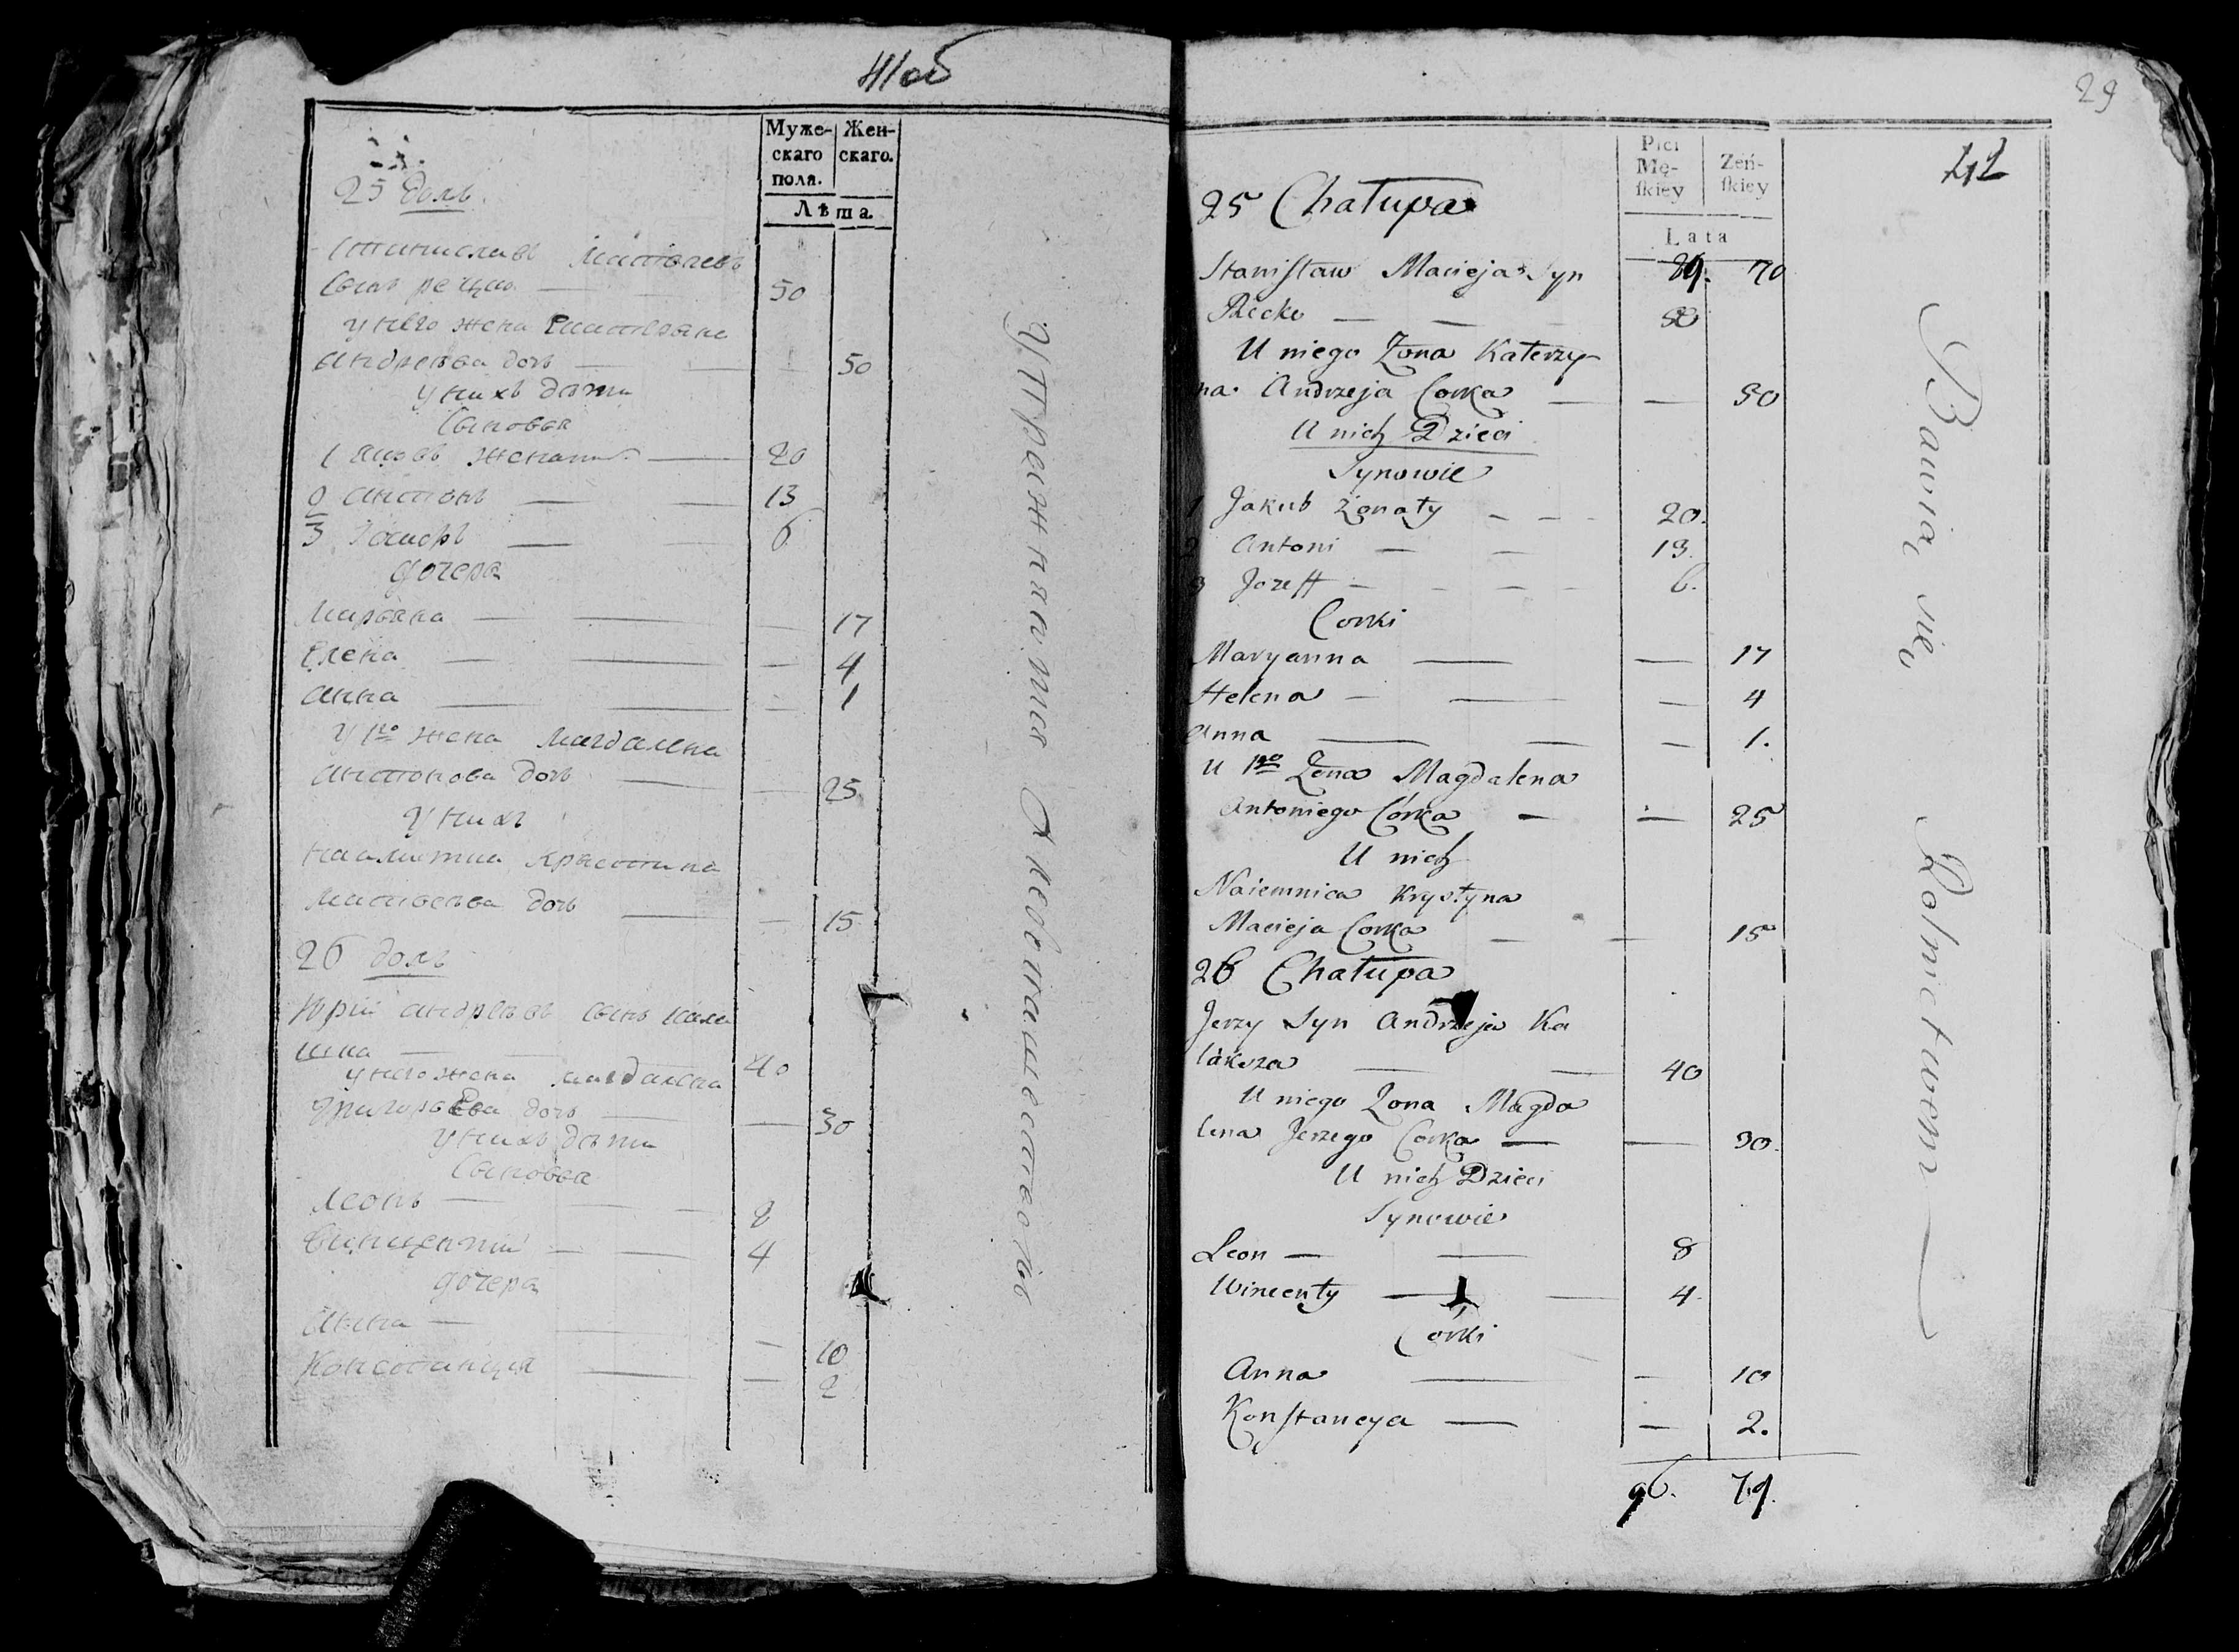 41об
Муже-
скаго
пола.
Жен-
скаго.
Лѣта
25 домъ.
Станиславъ Матвѣевъ
сынъ Рецко — 50
у него жена Екатерина
Андреева дочь — 50
у нихъ дѣти
Сыновья
1 Яковъ женатъ — 20
2 Антонъ — — 13
3 Іосифъ — — 6
дочери
Марьяна — — — 17
Елена — — — 4
Анна — — — 1
у 1го жена Магдалена
Антонова дочь — — 25
у нихъ
наемница Крестина
Матвѣева дочь — — 15
26 домъ
Юрій Андреевъ сынъ Кала
— 40
у него жена Магдалена
дочь — — 30
у нихъ дѣти
Сыновья
Леонъ — — — 8
Винцентій — — 4
дочери
Анна — — — 10
Констанція — — 2
Упражняются Хлебопашествомъ
29
42
Płci
Mę-
skiey
Żeń-
skiey
Lata
25 Chałupa
Stanisław Macieja Syn 89. 70
Recko — — 50
U niego Żona Katerzy-
na Andrzeja Corka — — 50
U nich Dzieci
Synowie
1 Jakub żonaty - - - 20.
2 Antoni — — 13.
3 Jozeff - - - - 6.
Corki
Maryanna — — 17
Helena - — — 4
Anna — — — 1.
U 1go Żona Magdalena
Antoniego Córka — — 25
U nich
Naiemnica Krystyna
Macieja Corka — — 15
26 Chałupa
Jerzy Syn Andrzeja Ka
laksza — — 40
U niego Żona Magda
lena Jerzego Corka — — 30.
U nich Dzieci
Synowie
Leon — — 8
Wincenty — — 4.
Córki
Anna — — 10
Konstancya — — 2.
96. 79.
Bawią się Rolnictwem